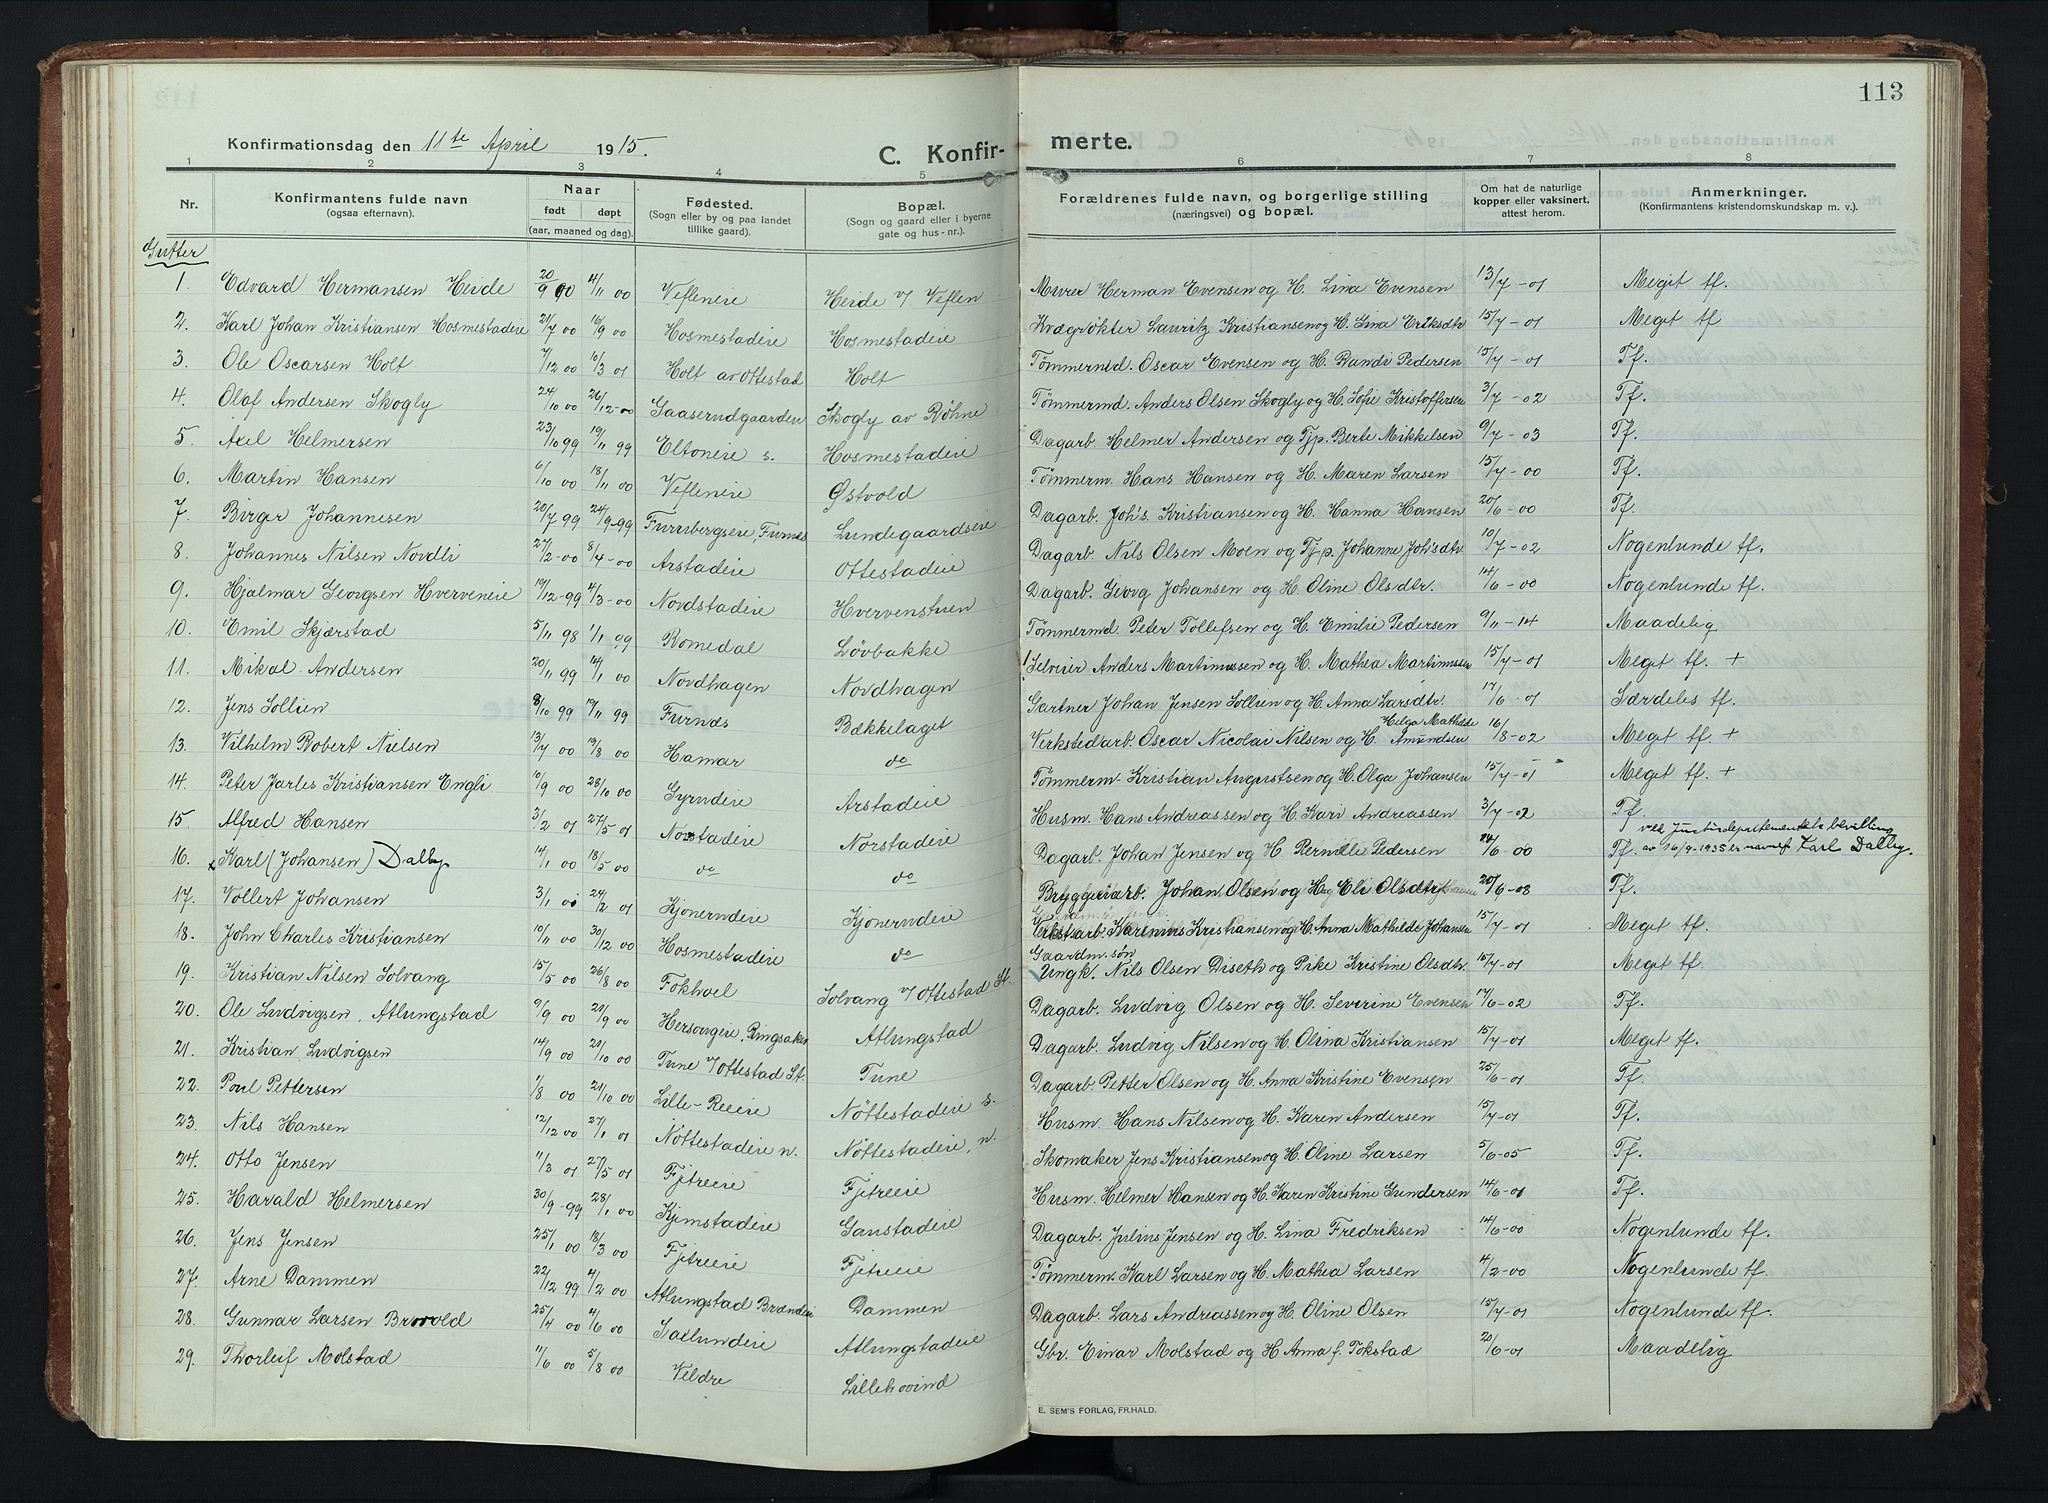 113
Konfirmationsdag den 11te April 1915.
C. Konfir-
merte.
1 2 3 4 5 6 7 8
Nr.
Konfirmantens fulde navn
(ogsaa efternavn).
Naar
født døpt
(aar, maaned og dag).
Fødested.
(Sogn eller by og paa landet
tillike gaard).
Bopæl.
(Sogn og gaard eller i byerne
gate og hus-nr.).
Forældrenes fulde navn, og borgerlige stilling
(næringsvei) og bopæl.
Om hat de naturlige
kopper eller vaksinert,
attest herom.
Anmerkninger.
(Konfirmantens kristendomskundskap m. v.).
Gutter
1. Edvard Hermansen Heide 20/9 00 4/11 00 Vefleneie Heide v/ Veflen Murer Herman Evensen og H. Lina Evensen 13/7-01 Meget tf.
2. Karl Johan Kristiansen Hosmestadeie 21/7 00 16/9 00 Hosmestadeie Hosmestadeie Kvægrøkter Lauritz Kristiansen og H. Gina Eriksdtr 15/7-01 Meget tf
3. Ole Oscarsen Holt 7/12 00 10/3 01 Holt av Ottestad Holt Tømmermd. Oscar Evensen og H. Randi Pedersen 15/7-01 Tf.
4. Olaf Andersen Skogly 24/10 00 26/12-00 Gaaserudgaarden Skogly av Røhne Tømmermd. Anders Olsen Skogly og H. Sofie Kristoffersen 3/7-02 Tf.
5. Axel Helmersen 23/10 99 19/11 99 Eltoneie s. Hosmestadeie Dagarb. Helmer Andersen og Tjp. Berte Mikkelsen 9/7-03 Tf.
6. Martin Hansen 6/10 00 18/11 00 Vefleneie Østvold Tømmerm. Hans Hansen og H. Maren Larsen 15/7-00 Tf.
7. Birger Johannesen 20/7 99 24/9-99 Furubergseie, Furnes Lundegaardseie Dagarb. Johs. Kristiansen og H. Hanna Hansen 20/6-00 Tf.
8. Johannes Nilsen Nordli 27/2-00 8/4-00 Arstadeie Ottestadeie Dagarb. Nils Olsen Moen og Tj.p. Johanne Johsdtr 10/7-02 Nogenlunde tf.
9. Hjalmar Georgsen Hverveneie 19/12-99 4/3-00 Nordstadeie Hvervenstuen Dagarb. Georg Johansen og H. Oline Olsdtr. 14/6-00 Nogenlunde tf.
10. Emil Skjærstad 5/11 98 1/1 99 Romedal Løvbakke Tømmermd. Peter Tollefsen og H. Emilie Pedersen 9/11-14 Maadelig
11. Mikal Andersen 20/11 99 14/1 00 Nordhagen Nordhagen Selveier Anders Martinussen og H. Mathea Martinussen 15/7-01 Meget tf. +
12. Jens Sollien 8/10 99 19/11 99 Furnæs Bækkelaget Gartner Johan Jensen Sollien og H. Anna Larsdtr. 17/6-01 Særdeles tf.
13. Vilhelm Robert Nielsen 13/7 00 19/8 00 Hamar do Verkstedarb. Oscar Nicolai Nilsen og H. Helga Mathilde Amundsen 16/8-02 Meget tf. +
14. Peter Jarles Kristiansen Engli 10/9 00 28/10 00 Gyrudeie Arstadeie Tømmerm. Kristian Augustsen og H. Olga Johansen 15/7-01 Meget tf. +
15. Alfred Hansen 3/2 01 27/5 01 Norstadeie Norstadeie Husm. Hans Andreassen og H. Kari Andreassen 3/7-02 Tf.
ved Justisdepartementets bevilling
16. Karl (Johansen) Dalby 14/1 00 18/5 00 do do Dagarb. Johan Jensen og H. Pernille Pedersen 14/6-00 Tf. av 16/9-1935 er navnet Karl Dalby.
17. Vollert Johansen 3/1 01 24/2 01 Kjonerudeie Kjonerudeie Bryggeriarb. Johan Olsen og H. Eli Olsdtr 20/6-08 Tf.
18. John Charles Kristiansen 10/11 00 30/12 00 Hosmestadeie do Verkstarb. Karenius Kristiansen og H. Anna Mathilde Johansen 15/7-01 Meget tf.
Gaardm. søn
19. Kristian Nilsen Solvang 15/5 00 26/8 00 Fokhoel Solvang v/ Ottestad St. Ungk. Nils Olsen Diseth og Pike Kristine Olsdtr. 15/7-01 Meget tf.
20. Ole Ludvigsen Atlungstad 9/9 00 29/9 00 Hersougeie, Ringsaker Atlungstad Dagarb. Ludvig Olsen og H. Severine Evensen 17/6-02 Tf.
21. Kristian Ludvigsen 14/9 00 20/10 00 Tune v/ Ottestad St. Tune Dagarb. Ludvig Nilsen og H. Olina Kristiansen 15/7-01 Meget tf.
22. Poul Pettersen 1/8 00 21/10 00 Lille-Reeie Nøttestadeie s. Dagarb. Petter Olsen og H. Anna Kristine Evensen 25/6-01 Tf.
23. Nils Hansen 12/12 00 27/1 01 Nøttestadeie n. Nøttestadeie, n. Husm. Hans Nilsen og H. Karen Andersen 15/7-01 Tf.
24. Otto Jensen 11/3 01 27/5 01 Fjetreeie Fjetreeie Skomaker Jens Kristiansen og H. Oline Larsen 5/6-05 Tf.
25. Harald Helmersen 30/9-99 28/1 00 Kjemstadeie Gaustadeie Husm. Helmer Hansen og H. Karen Kristine Gundersen 14/6-01 Tf.
26. Jens Jensen 25/1 00 18/3 00 Fjetreeie Fjetreeie Dagarb. Julius Jensen og H. Lina Fredriksen 14/6-00 Nogenlunde tf.
27. Arne Dammen 22/12 99 4/2 00 Atlungstad Brænderi Dammen Tømmerm. Karl Larsen og H. Mathea Larsen 4/2-00 Nogenlunde tf.
28. Gunnar Larsen Brovold 25/4 00 4/6 00 Sælundeie Atlungstadeie Dagarb. Lars Andreassen og H. Oline Olsen 15/7-01 Nogenlunde tf.
29. Thorleif Molstad 11/6 00 5/8 00 Veldre Lillehovind Gbr. Einar Molstad og H Anna f. Tokstad 20/6-01 Maadelig
E. SEM'S FORLAG, FR.HALD.